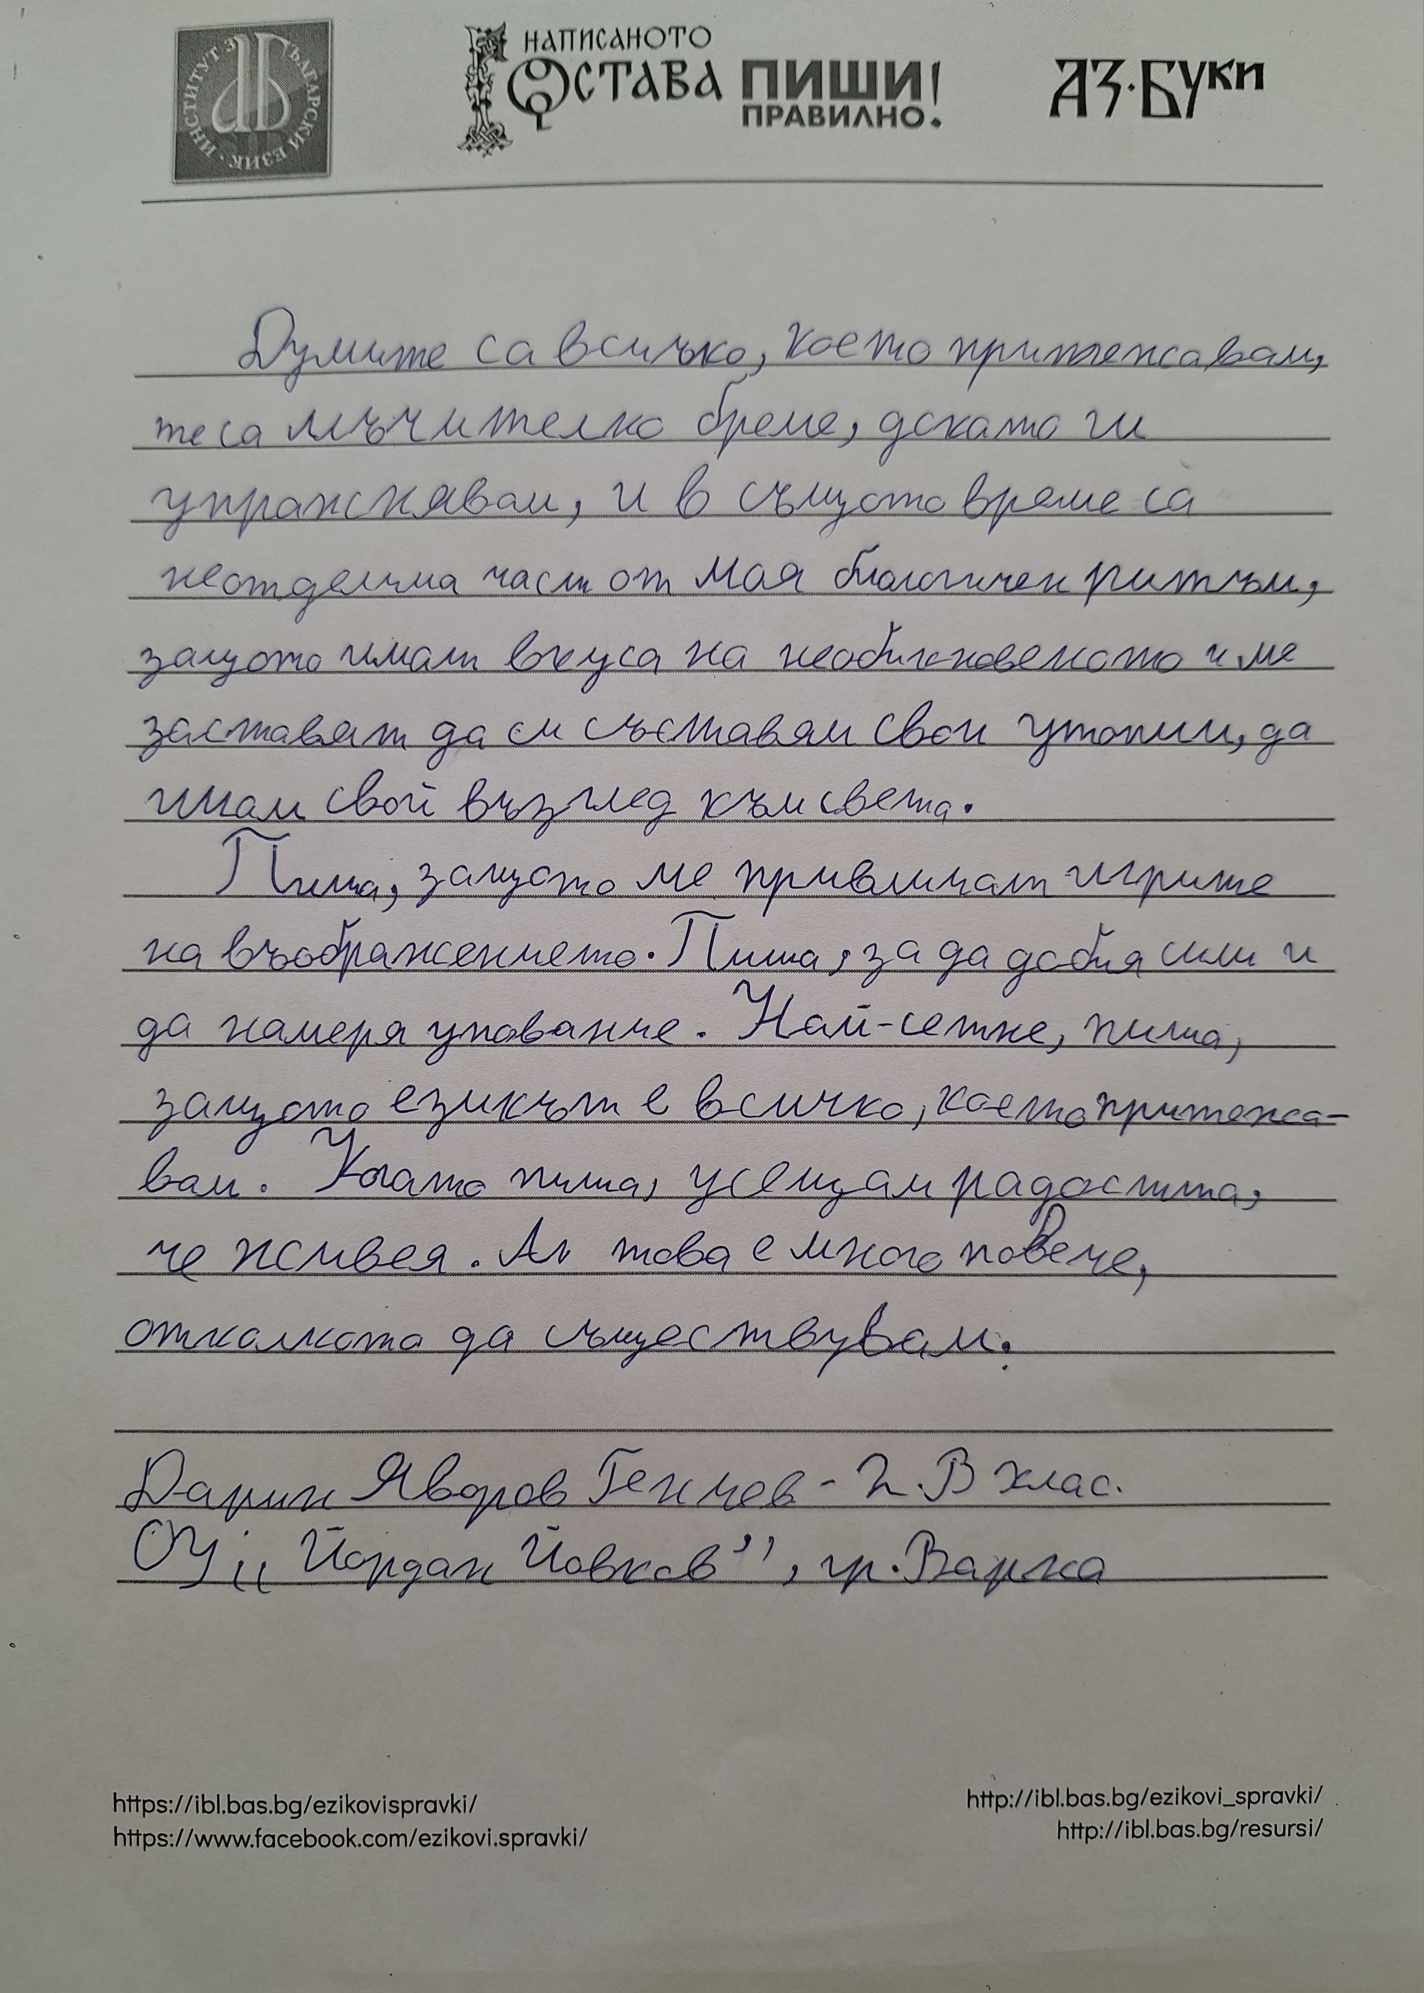 ИНСТИТУТ ЗА БЪЛГАРСКИ ЕЗИК
НАПИСАНОТО
ОСТАВА ПИШИ
ПРАВИЛНО!
АЗ·БУКИ
Думите са всичко, което притежавам,
те са мъчително бреме, докато ги
упражнявам, и в същото време са
неотделима част от моя биологичен ритъм,
защото имат вкуса на необикновеното и ме
заставят да си съставям свои утопии, да
имам свой възглед към света.
Пиша, защото ме привличат игрите
на въображението. Пиша, за да добия сили и
да намеря упование. Най-сетне, пиша,
защото езикът е всичко, което притежа-
вам. Когато пиша, усещам радостта,
че живея. А това е много повече,
отколкото да съществувам.
Дарин Яворов Генчев - 2. В клас.
ОУ „Йордан Йовков", гр. Варна
https://ibl.bas.bg/ezikovispravki/
https://www.facebook.com/ezikovi.spravki/
http://ibl.bas.bg/ezikovi_spravki/
http://ibl.bas.bg/resursi/